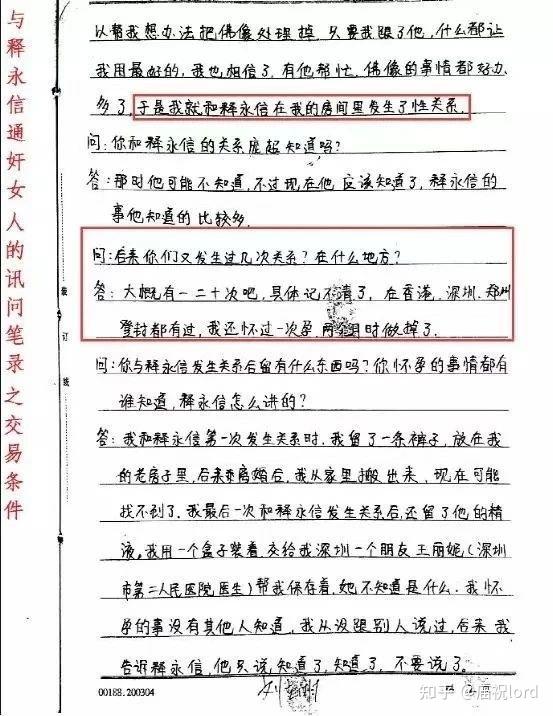 与释永信通奸女人的讯问笔录之交易条件
以帮我想办法把佛像处理掉,只要我跟了他,什么都让
我用最好的,我也相信了,有他帮忙,佛像的事情都好办
多了,于是我就和释永信在我的房间里发生了性关系.
问:你和释永信的关系庞超知道吗?
答:那时他可能不知道,不过现在他应该知道了,释永信的
事他知道的比较多.
问:后来你们又发生过几次关系?在什么地方?
答:大概有一二十次吧,具体记不清了,在香港,深圳.郑州
登封都有过,我还怀过一次孕.两个月时做掉了.
问:你与释永信发生关系后留有什么东西吗?你怀孕的事情都有
谁知道,释永信怎么讲的?
答:我和释永信第一次发生关系时,我留了一条裤子,放在我
的老房子里,后来离婚后,我从家里搬出来,现在可能
找不到了.我最后一次和释永信发生关系后,还留了他的精
液,我用一个盒子装着,交给我深圳一个朋友王丽妮(深圳
市第二人民医院医生)帮我保存着,她不知道是什么.我怀
孕的事没有其他人知道,我从没跟别人说过,后来我
告诉释永信,他只说,知道了,知道了,不要说了。
装
订
线
00188.200304
知乎 @庙祝lord